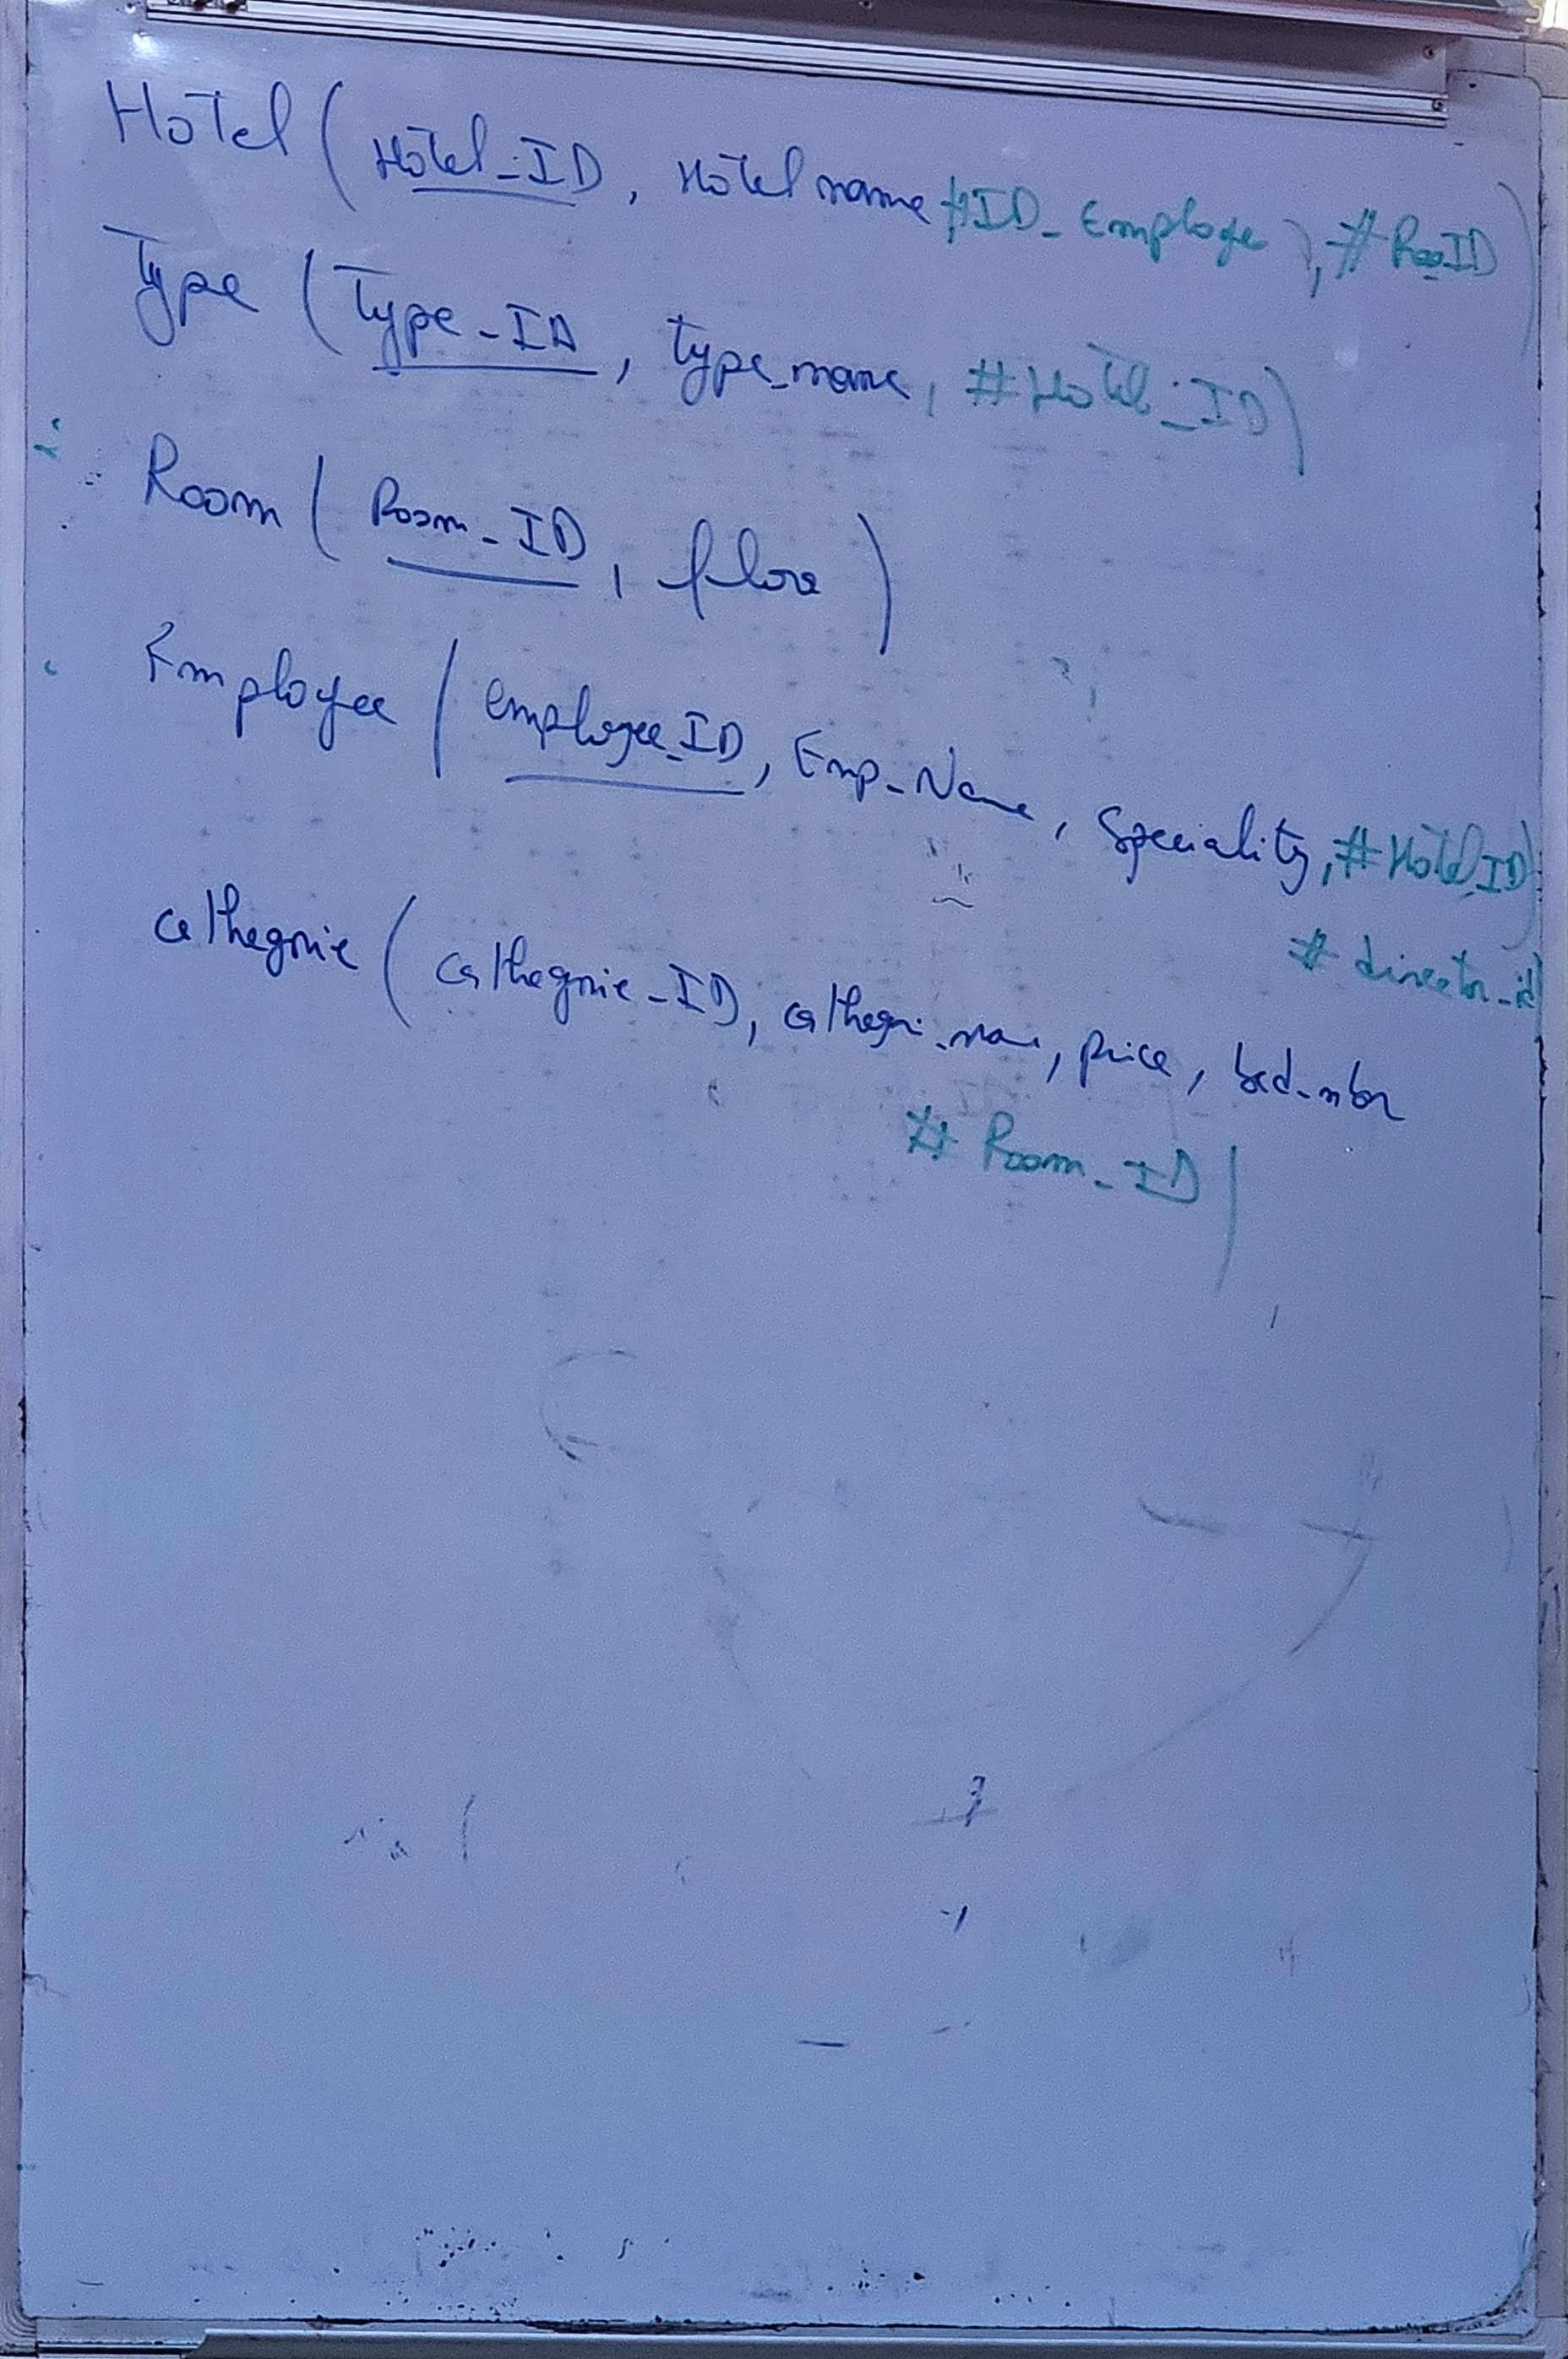 Hotel ( Hotel_ID, Hotel name #ID_Employe ), # RooID )
Type ( Type_ID, type_name, # Hotel_ID )
Room ( Room_ID, floor )
Employee ( employee_ID, Emp_Name, Speciality, # Hotel_ID )
# director_id
cathegorie ( cathegorie_ID, cathegori_name, price, bed_nbr
# Room_ID )